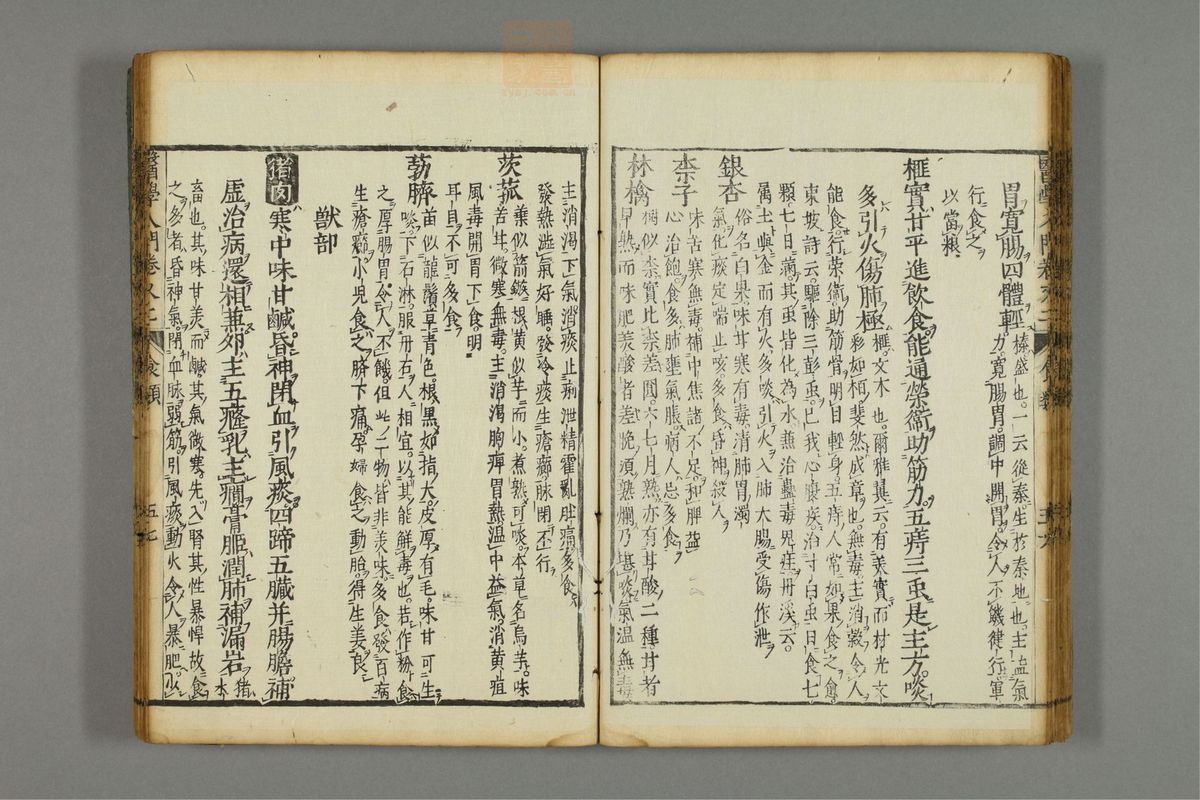 胃寬腸四體輕榛盛也一云從秦生於秦地也主益氣
力寬腸胃調中開胃令人不飢健行軍
行食之
以當粮
榧實甘平進飲食能通榮衛助筋力五痔三蟲是主方啖
多引火傷肺極榧文木也爾雅翼云有美實而材光文
彩如栢斐然成章也無毒主消穀令人
能食行榮衛助筋骨明目輕身五痔人常如果食之愈
東坡詩云驅除三彭蟲已我心腹疾治寸白蟲日食七
顆七日滿其蟲皆化為水兼治蠱毒鬼疰丹溪云
屬土與金而有火多啖引火入肺大腸受傷作泄
銀杏俗名白果味甘寒有毒清肺胃濁
氣化痰定喘止咳多食昏神殺人
柰子味苦寒無毒補中焦諸不足和脾益
心治飽食多肺壅氣脹病人忌多食
林檎樹似柰實比柰差圓六七月熟亦有甘酸二種甘者
早熟而味肥美酸者差晚須熟爛乃堪啖氣溫無毒
主消渴下氣消痰止痢泄精霍亂肚痛多食
發熱澁氣好睡發冷痰生瘡癤脉閉不行
茨菰葉似箭鏃根黃似芋而小煮熟可啖本草名烏芋味
苦甘微寒無毒主消渴胸痺胃熱溫中益氣消黃疸
風毒開胃下食明
耳目不可多食
葧臍苗似龍鬚草青色根黑如指大皮厚有毛味甘可生
啖下石淋服丹石人相宜以其能解毒也若作粉食
之厚腸胃令人不飢但此二物皆非美味多食發百病
生瘡癤小兒食之臍下痛孕婦食之動胎得生姜良
獸部
猪肉寒中味甘鹹昏神閉血引風痰四蹄五臟并腸膽補
虛治病還相兼卵主五癃乳主癇骨脂潤肺補漏岩猪
本
畜也其味甘美而鹹其氣微寒先入腎其性暴悍故食
之多者昏神氣閉血脉弱筋引風痰動火令人暴肥
醫學入門卷
食類
五七